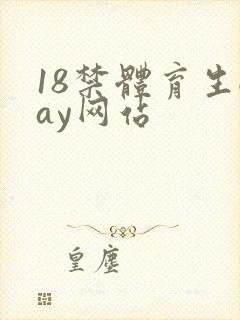 18禁體育生
ay网佔
皇塵